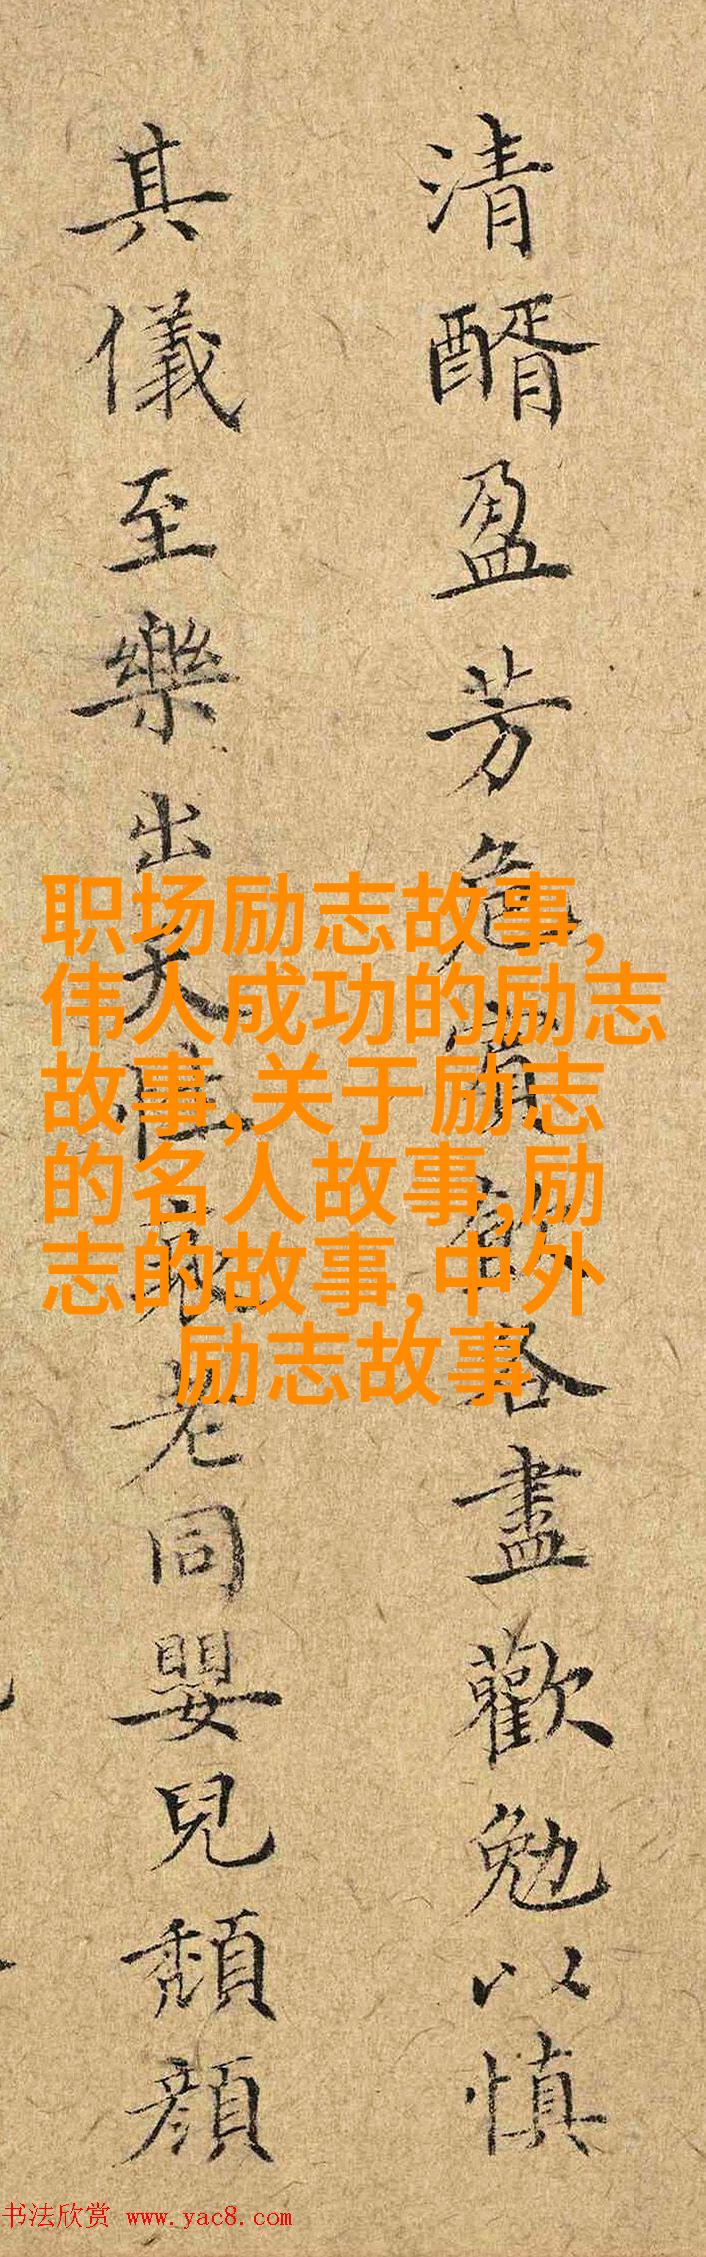 清醑盈芳危賓朋各盡歡勉以慎
其儀至樂出天性敬老同嬰兒頹顔
职场励志故事,
伟人成功的励志
故事,关于励志
的名人故事,励
志的故事,中外
励志故事
书法欣赏 www.yac8.com